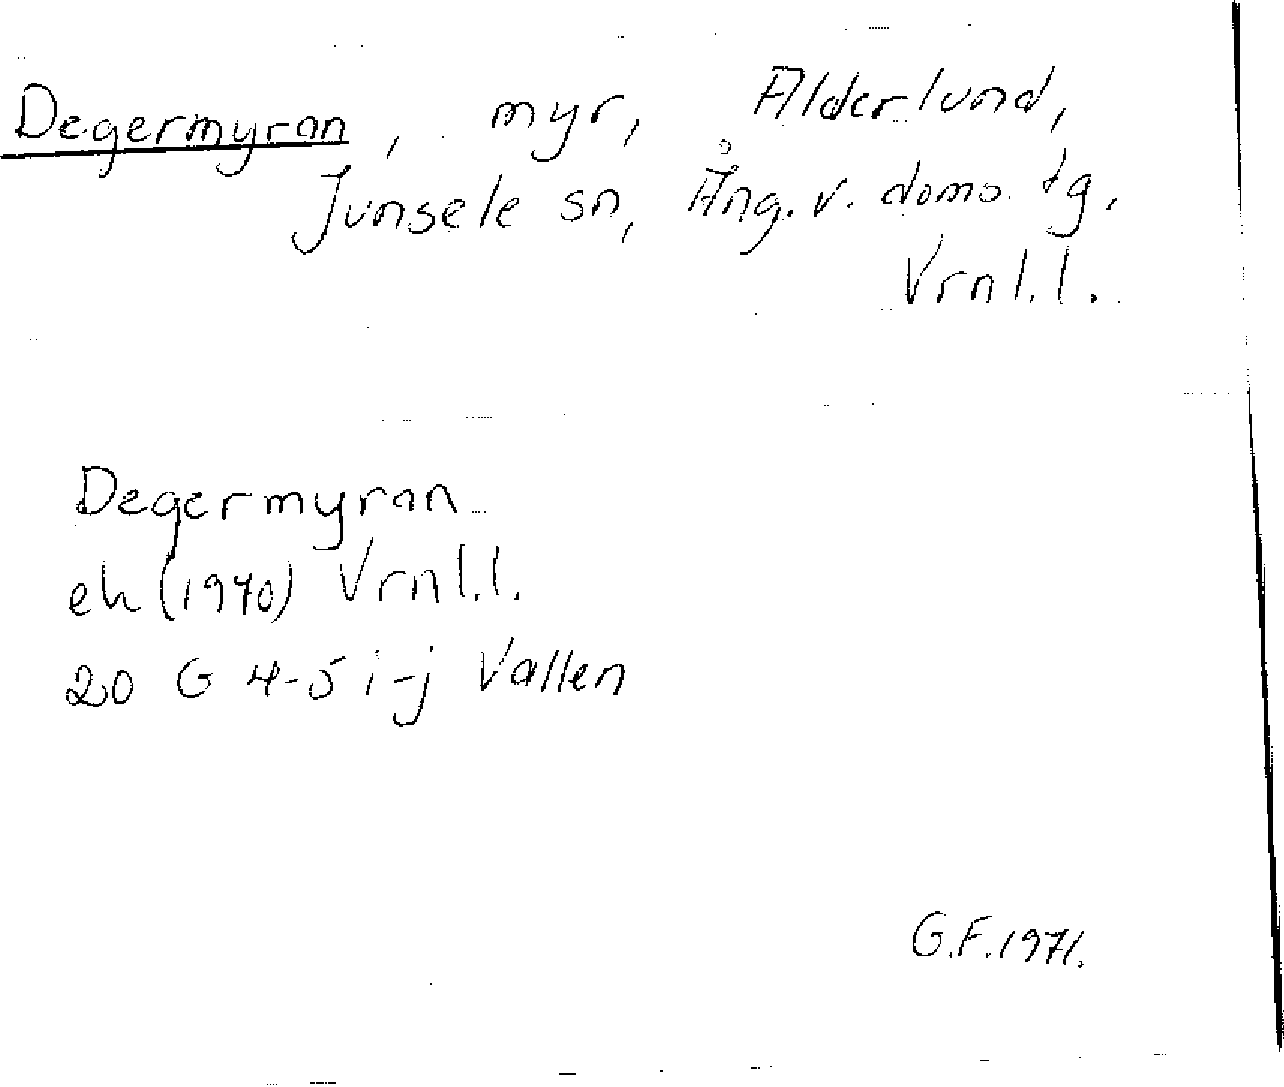 Degermyran, myr, Alderlund,
Junsele sn, Ång. v. doms. tg,
Vrnl.l.
Degermyran
ek (1970) Vrnl.l.
20 G 4-5 i-j Vallen
G.F. 1971.